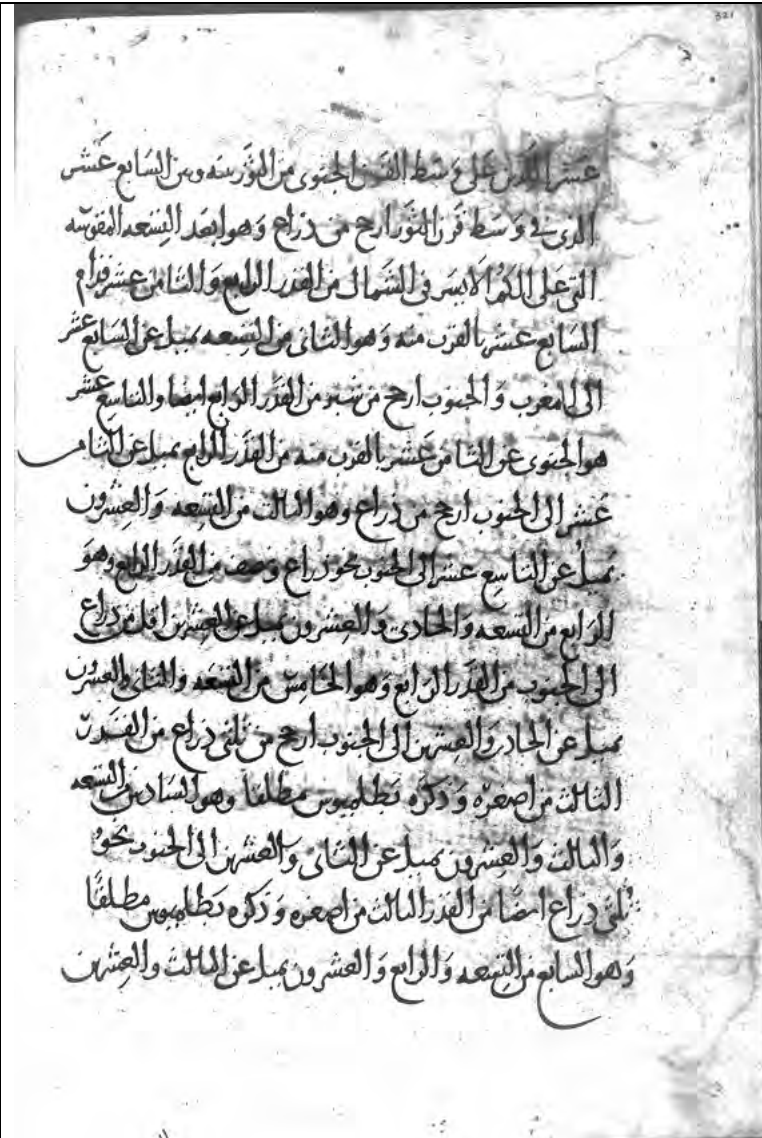 321
عشر الذى على وسط القرن الجنوبى من الثور بينه وبين السابع عشر
الذى فى وسط قرن الثور ارجح من ذراع وهو ابعد التسعه المقوسه
التى على الكم الايسر فى الشمال من القدر الرابع والثامن عشر قدام
السابع عشر بالقرب منه وهو الثانى من التسعه يميل عن السابع عشر
الى المغرب والجنوب ارجح من شبر من القدر الرابع ايضا والتاسع عشر
هو الجنوبى عن الثامن عشر بالقرب منه من القدر الرابع يميل عن الثامن
عشر الى الجنوب ارجح من ذراع وهو الثالث من التسعه والعشرون
يميل عن التاسع عشر الى الجنوب نحو ذراع ونصف من القدر الرابع وهو
الرابع من التسعه والحادى والعشرون يميل عن العشرين اقل من ذراع
الى الجنوب من القدر الرابع وهو الخامس من التسعه والثانى والعشرون
يميل عن الحادى والعشرين الى الجنوب ارجح من ثلثى ذراع من القدر
الثالث من اصغره وذكره بطلميوس مطلقا وهو السادس من التسعه
والثالث والعشرون يميل عن الثانى والعشرين الى الجنوب نحو
ثلثى ذراع ايضا من القدر الثالث من اصغره وذكره بطلميوس مطلقا
وهو السابع من التسعه والرابع والعشرون يميل عن الثالث والعشرين